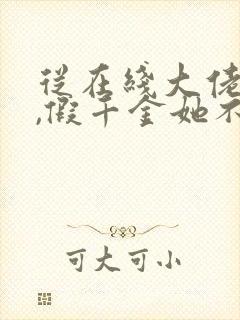 从在线大佬
,假千金她不
可大可小